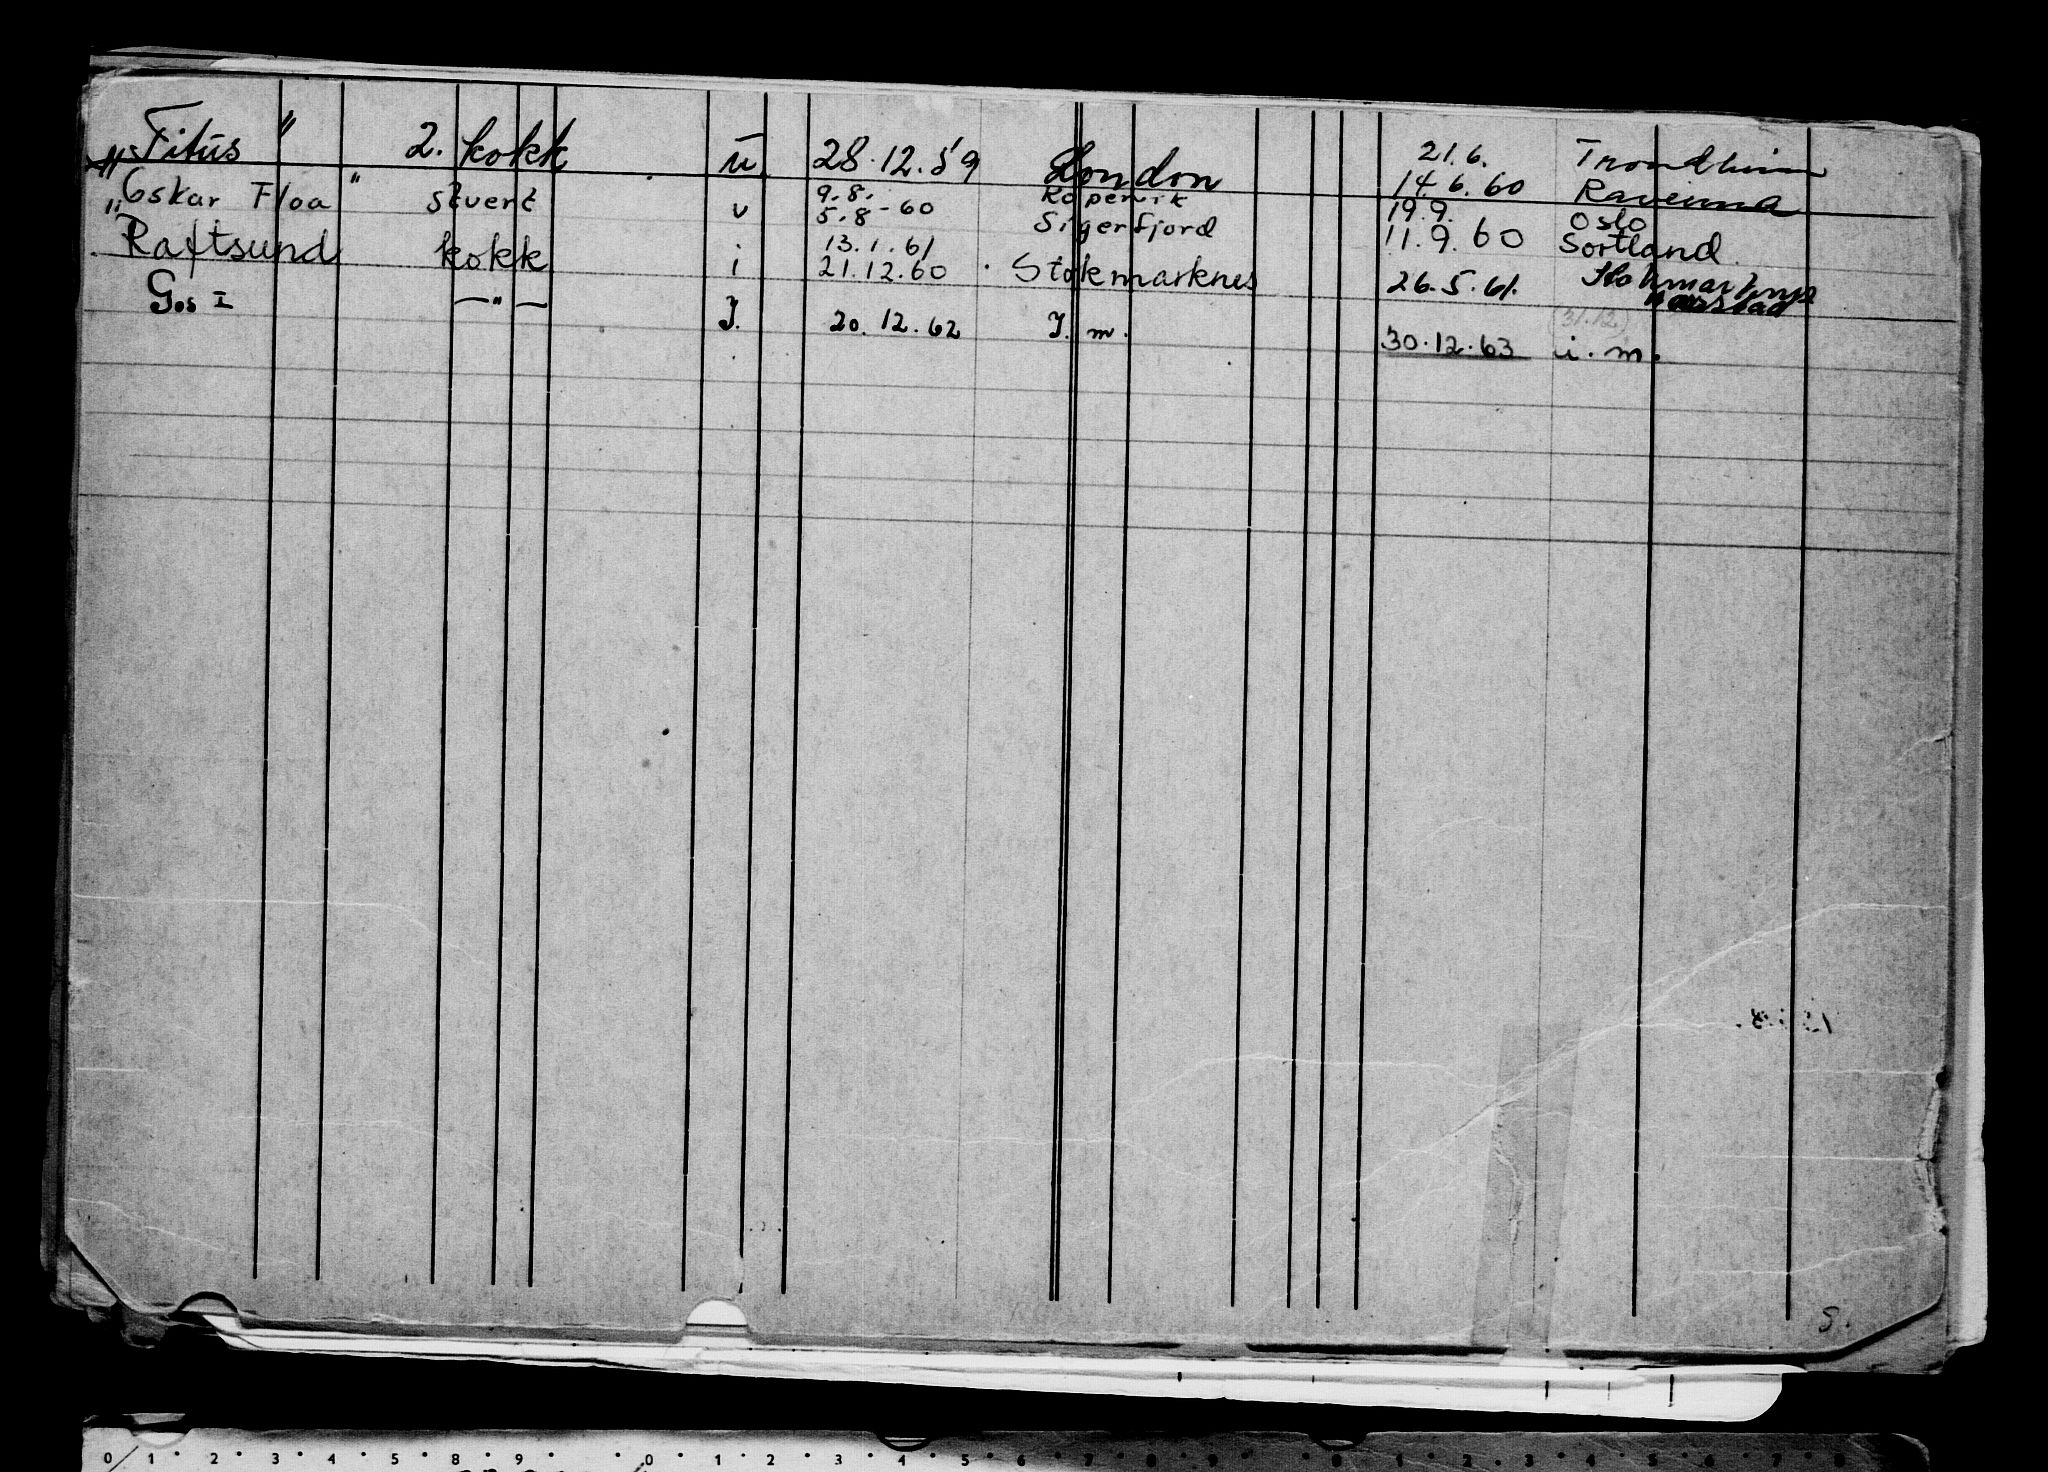 "Titus" 2. kokk u 28.12.59 London 21.6. Trondheim
14.6.60 Ravenna
"Oskar Floa" stuert v 9.8. Kopervik 19.9. Oslo
5.8-60 Sigerfjord 11.9.60 Sortland
Raftsund kokk i 13.1.61
21.12.60 Stokmarknes 26.5.61. Stokmarknes
Harstad
Gos I —"— I. 20.12.62 I. m. (31.12)
30.12.63 i. m.
S.
0 1 2 3 4 5 8 9 0 1 2 3 4 5 6 7 8 9 0 1 2 3 4 5 6 7 8